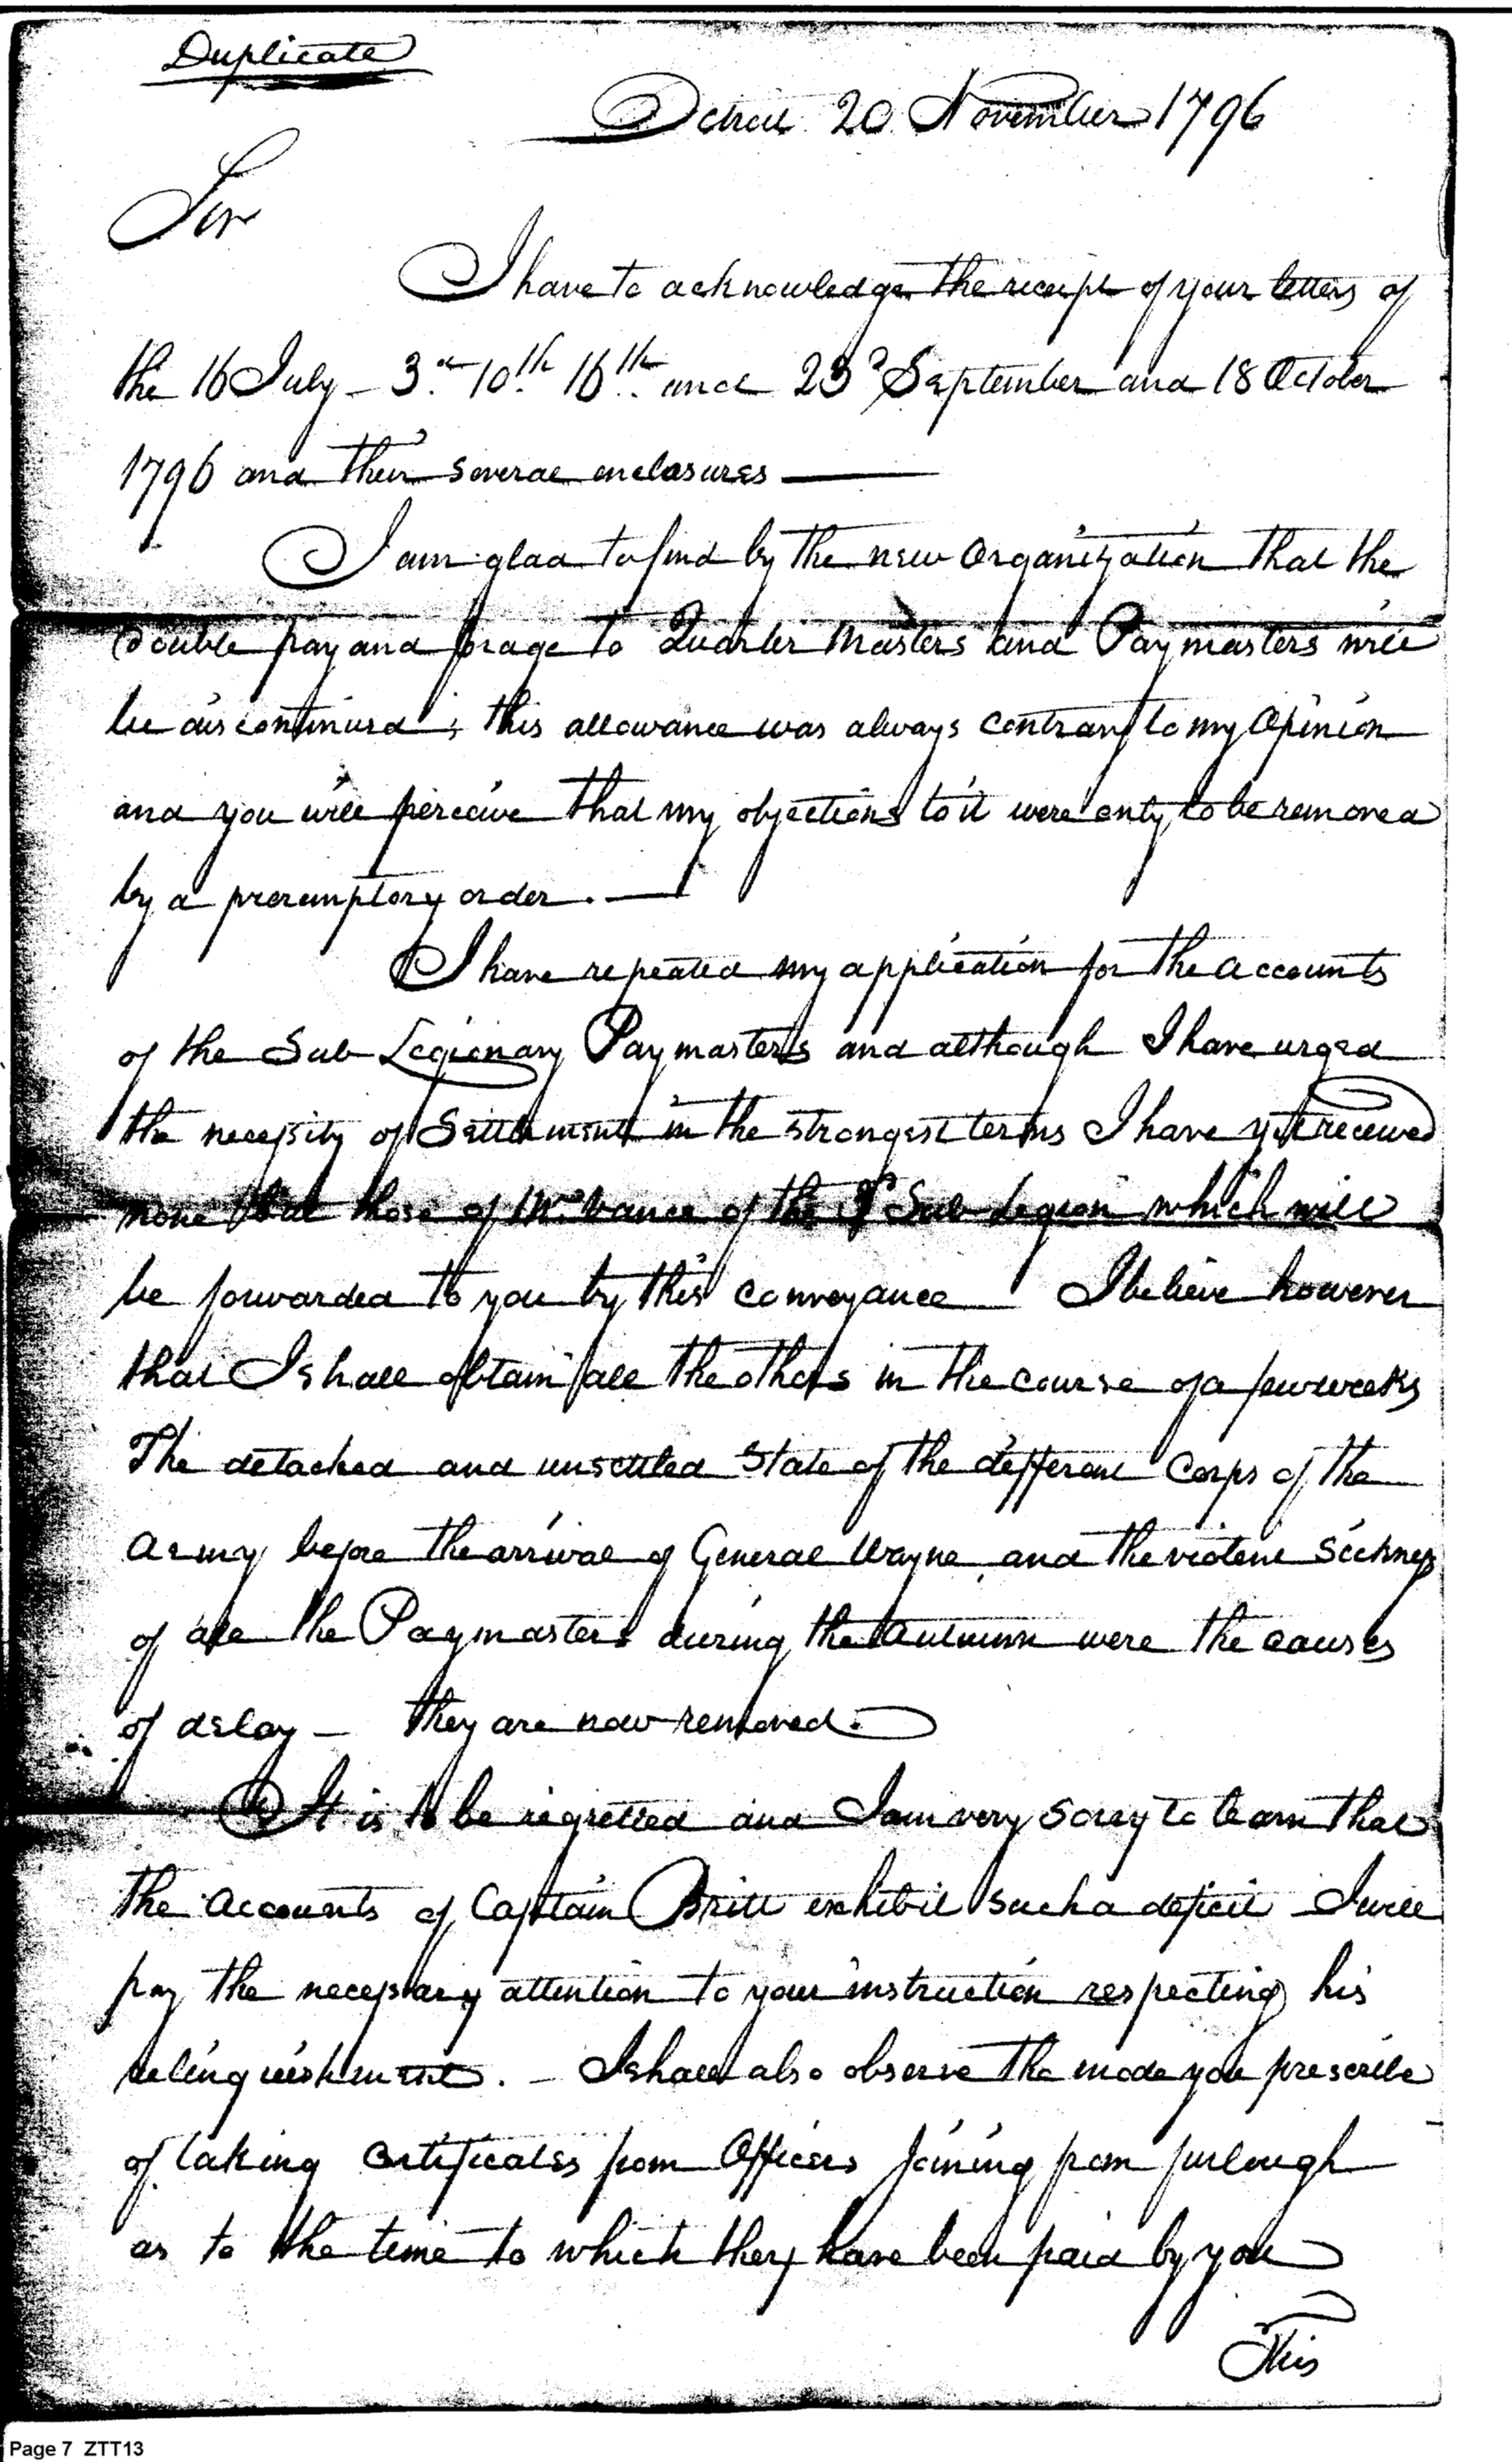 Duplicate
Detroit 20 November 1796
Sir
I have to acknowledge the receipt of your letters of
the 16 July – 3.d 10.th 16.th and 23d September and 18 October
1796 and their several enclosures ——
I am glad to find by the new Organization that the
double pay and forage to Quarter Masters and Paymasters will
be discontinued; this allowance was always contrary to my Opinion
and you will perceive that my objections to it were only to be removed
by a peremptory order. —
I have repeated my application for the accounts
of the Sub Legionary Paymasters and although I have urged
the necessity of Settlement in the strongest terms I have yet received
none but those of Mr. Vance of the Sub Legion which will
be forwarded to you by this conveyance I believe however
that I shall obtain all the others in the course of a few weeks
The detached and unsettled State of the different Corps of the
Army before the arrival of General Wayne and the violent Sickness
of all the Paymasters during the Autumn were the causes
of delay – they are now removed.
It is to be regretted and I am very sorry to learn that
the Accounts of Captain Britt exhibit such a deficit I will
pay the necessary attention to your instruction respecting his
relinquishment. – I shall also observe the mode you prescribe
of taking Certificates from Officers joining from furlough
as to the time to which they have been paid by you
This
Page 7 ZTT13